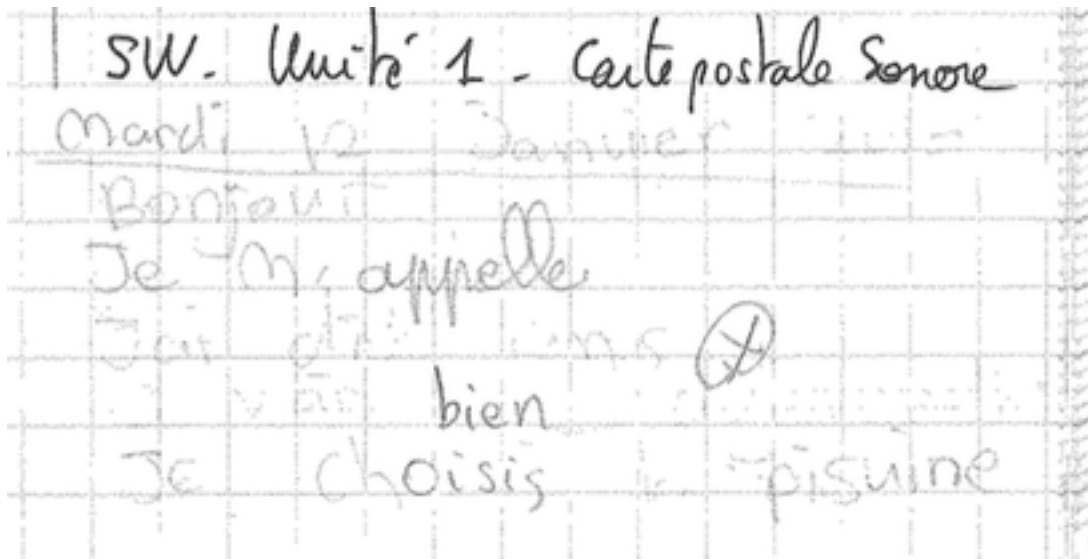 SW. Unité 1 - Carte postale Sonore
Mardi 12 Janvier
Bonjour
Je m'appelle
J'ai ans
bien
Je choisis piscuine